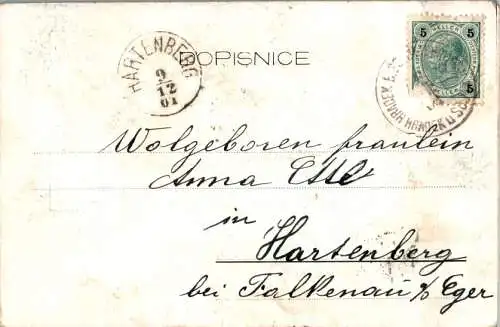 DOPISNICE
HARTENBERG
9
12
01
5 HELLER 5
5 5
HRADEK
Wolgeboren fraulein
Anna
in
Hartenberg
bei Falkenau a/b Eger